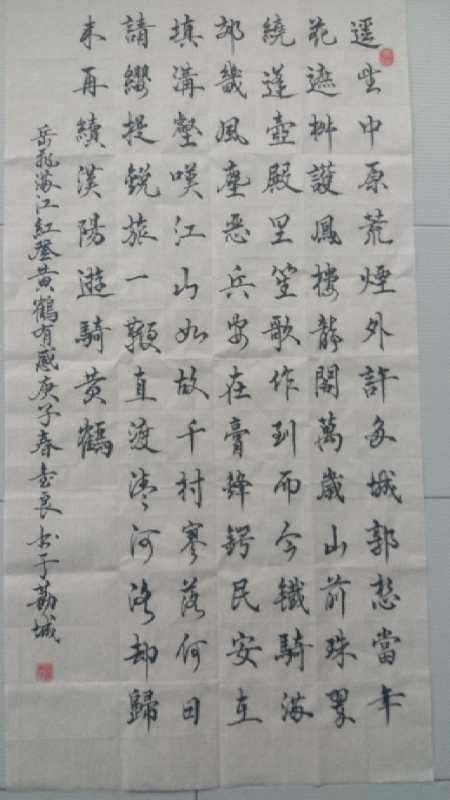 遥望中原荒煙外許多城郭想當年
花遮柳護鳳樓龍閣萬歲山前珠翠
繞蓬壺殿里笙歌作到而今鐵騎滿
郊畿風塵惡兵安在膏鋒鍔民安在
填溝壑嘆江山如故千村寥落何日
請纓提銳旅一鞭直渡清河洛却歸
来再續漢陽遊騎黄鶴
岳飛滿江紅登黄鶴有感庚子春良书于荔城